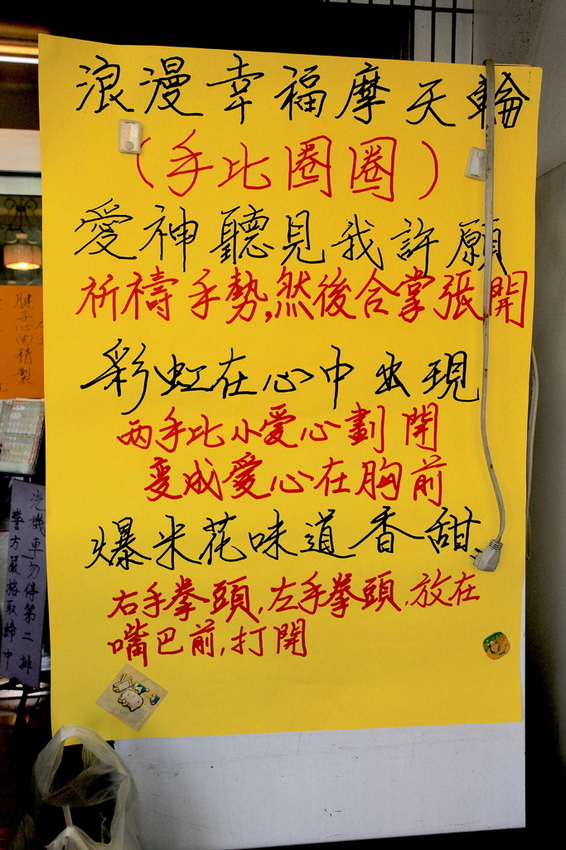 浪漫幸福摩天輪
(手比圈圈)
愛神聽見我許願
祈禱手勢,然後合掌張開
彩虹在心中出現
两手比小愛心劃開
变成愛心在胸前
爆米花味道香甜
右手拳頭,左手拳頭,放在
嘴巴前,打開
洗機車勿停第二排
警方嚴格取締中